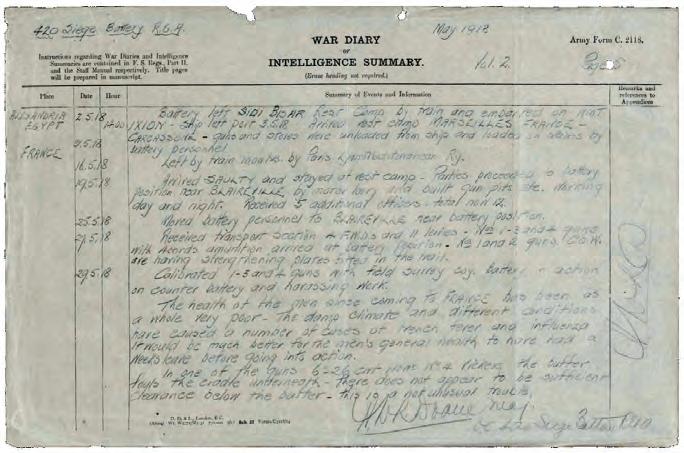 420 Siege Battery R.G.A.
May 1918
WAR DIARY
or
INTELLIGENCE SUMMARY.
(Erase heading not required.)
Army Form C. 2118.
Vol. 2.
Instructions regarding War Diaries and Intelligence
Summaries are contained in F. S. Regs., Part II.
and the Staff Manual respectively. Title pages
will be prepared in manuscript.
Place Date Hour Summary of Events and Information Remarks and references to Appendices
ALEXANDRIA EGYPT 2.5.18 1400 Battery left SIDI BISHR Rest Camp by train and embarked on HMT
IXION - Ship left port 3.5.18 Arrived rest camp MARSEILLES FRANCE -
FRANCE 9.5.18 CARCASSONE - guns and stores were unloaded from ship and loaded on by
battery personnel
16.5.18 Left by train by Paris Lyon Mediterranean Ry.
19.5.18 Arrived SAULTY and stayed at rest camp - Parties proceeded to battery
position near BLAIREVILLE, by motor lorry and built gun pits etc. working
day and night. Received 5 additional officers - total now 12.
25.5.18 Moved battery personnel to BLAIREVILLE near battery position.
27.5.18 Received transport section 4 F.W.Ds and 11 lorries - Nos 1-3 and 4 guns
with ammunition arrived at battery position - No 1 and 2 guns
are having strengthening plates fitted in the trail.
29.5.18 Calibrated 1-3 and 4 guns with field survey coy. battery in action
on counter battery and harassing work.
The health of the men since coming to FRANCE has been as
a whole very poor - The damp climate and different conditions
have caused a number of cases of trench fever and influenza
It would be much better for the men's general health to have had a
weeks leave before going into action.
In one of the guns 6-26 cwt No 4 Vickers, the buffer
fouls the cradle underneath - there does not appear to be sufficient
clearance below the buffer - this is a not unusual trouble.
Major
OC 420 Siege Battery RGA